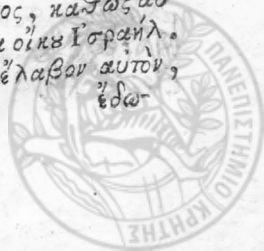 ος, καπως αὐ
οἴκου Ἰσραήλ.
ἔλαβον αὐτὸν,
ἔδω-
ΠΑΝΕΠΙΣΤΗΜΙΟ ΚΡΗΤΗΣ